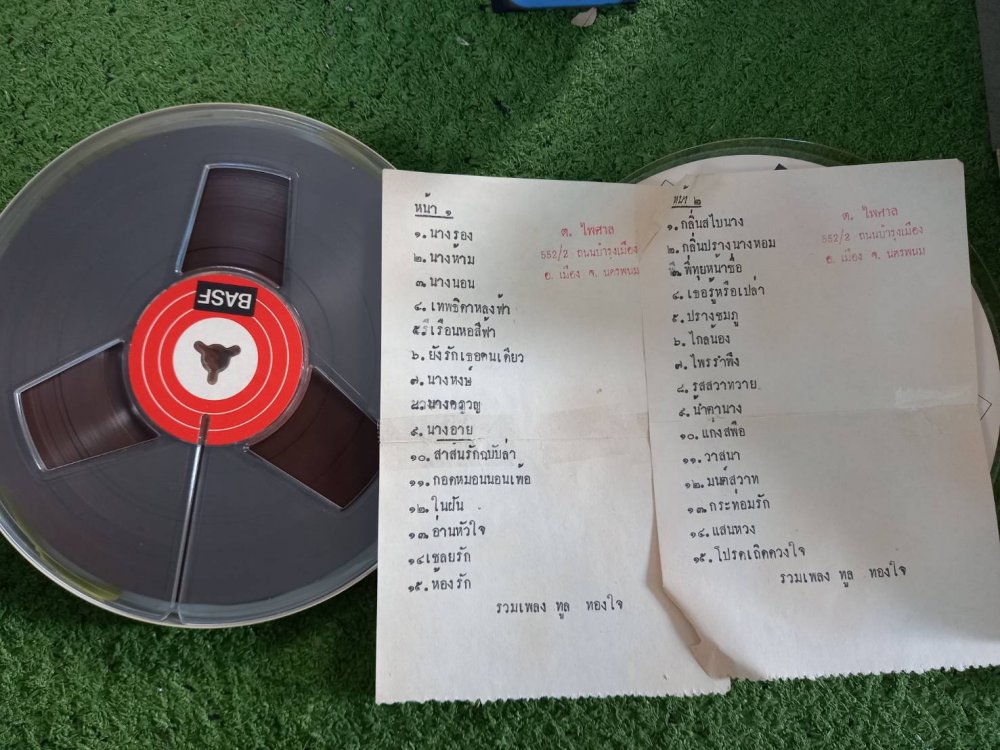 BASF
หน้า ๑
ต. ไพศาล
552/2 ถนนบำรุงเมือง
อ. เมือง จ. นครพนม
๑. นางรอง
๒. นางห้าม
๓. นางนอน
๔. เทพธิดาหลงฟ้า
๕. เรือนหอสีฟ้า
๖. ยังรักเธอคนเดียว
๗. นางหงษ์
๘. นางครวญ
๙. นางอาย
๑๐. สาส์นรักฉบับล่า
๑๑. กอดหมอนนอนเพ้อ
๑๒. ในฝัน
๑๓. อ่านหัวใจ
๑๔. เชลยรัก
๑๕. ห้องรัก
รวมเพลง ทูล ทองใจ
หน้า ๒
ต. ไพศาล
552/2 ถนนบำรุงเมือง
อ. เมือง จ. นครพนม
๑. กลิ่นสไบนาง
๒. กลิ่นปรางนางหอม
๓. พี่ทุยหน้าซื่อ
๔. เธอรู้หรือเปล่า
๕. ปรางชมภู
๖. ไกลน้อง
๗. ไพรรำพึง
๘. รุสสวาทวาย
๙. น้ำตานาง
๑๐. แก่งสพือ
๑๑. วาสนา
๑๒. มนต์สวาท
๑๓. กระท่อมรัก
๑๔. แสนหวง
๑๕. โปรดเถิดดวงใจ
รวมเพลง ทูล ทองใจ